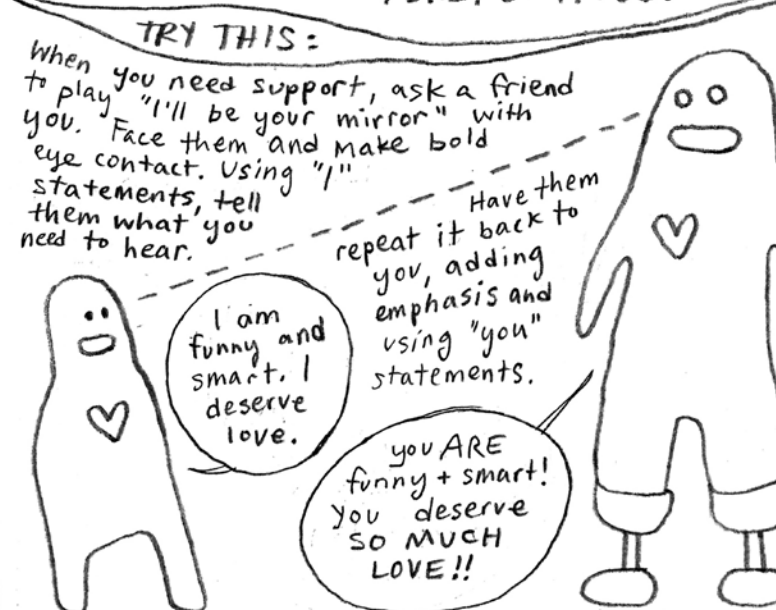 TRY THIS:
When you need support, ask a friend
to play "I'll be your mirror" with
you. Face them and make bold
eye contact. Using "I"
statements, tell
them what you
need to hear.
Have them
repeat it back to
you, adding
emphasis and
using "you"
statements.
I am
funny and
smart. I
deserve
love.
you ARE
funny + smart!
You deserve
SO MUCH
LOVE!!